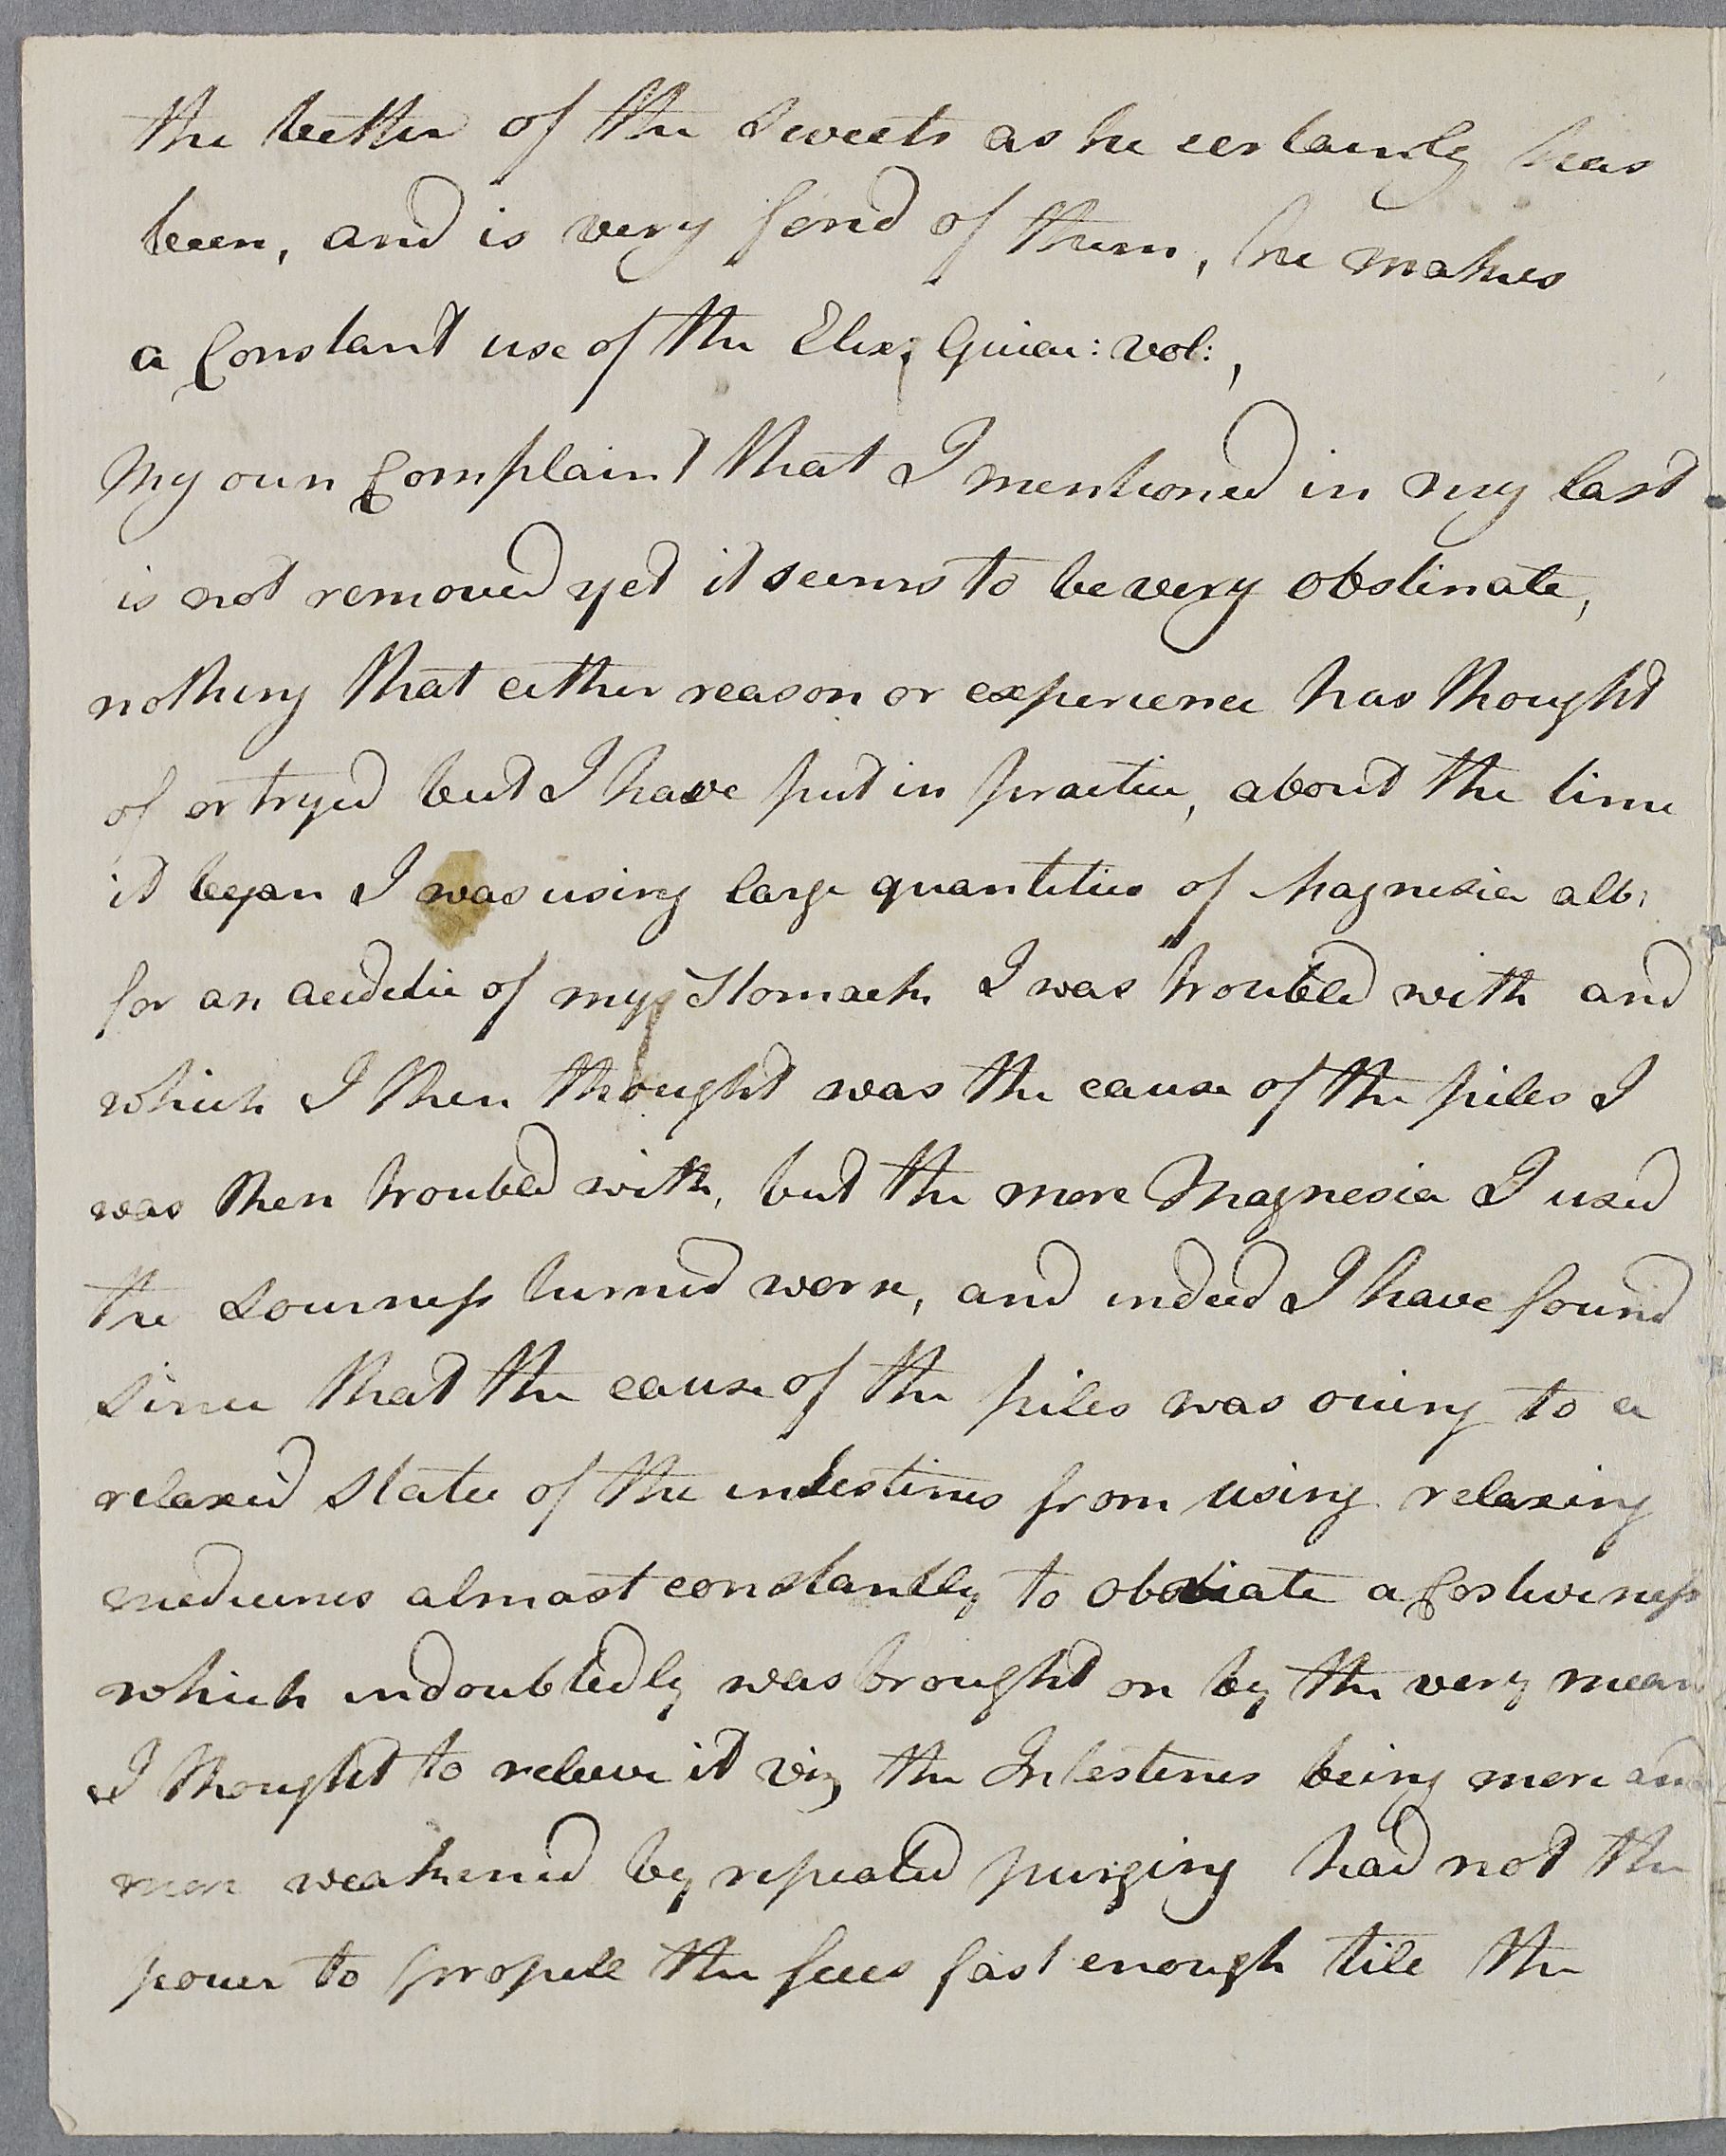 the better of the Sweets as he certainly has
been, and is very fond of them, he makes
a Constant use of the Elix: Guiac: vol:,
My own Complaint that I mentioned in my last
is not removed yet it seems to be very obstinate,
nothing that either reason or experience has thought
of or tryed but I have put in practice, about the time
it began I was using large quantities of Magnesia alb:
for an of my Stomach I was troubled with and
which I then thought was the cause of the piles I
was then troubled with, but the more Magnesia I used
the Sourness turned worse, and indeed I have found
since that the cause of the piles was owing to a
relaxed state of the intestines from using relaxing
medicines almost constantly to obviate a Costiveness
which undoubtedly was brought on by the very mean
I thought to releive it viz the Intestines being more and
more weakened by repeated purging had not the
power to propell the feces fast enough till the